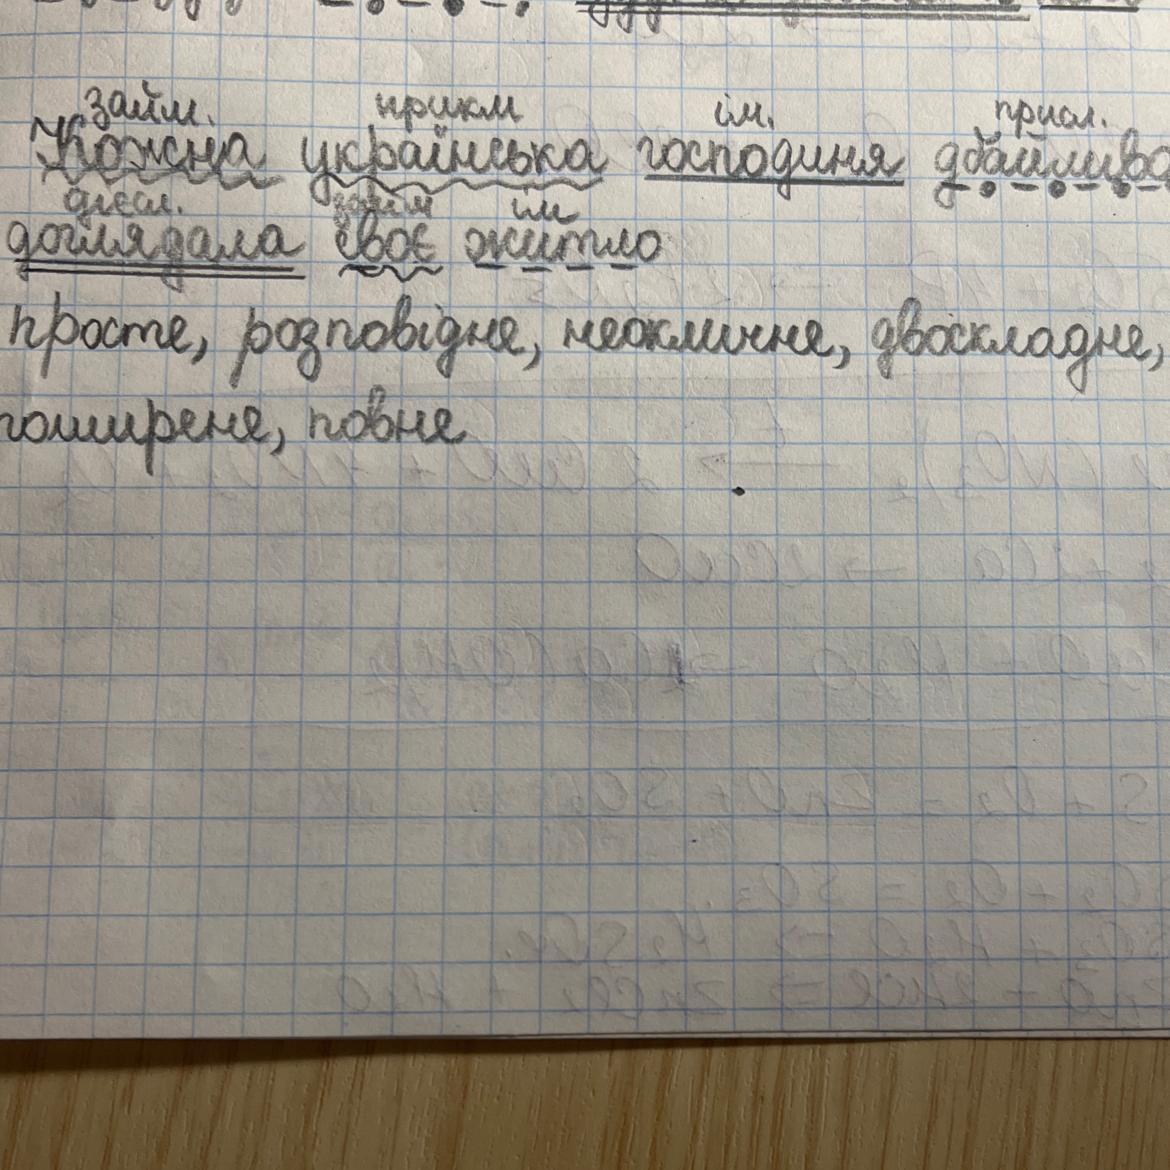 займ. прикм ім. присл.
Кожна українська господиня дбайливо
дієсл. займ ім
доглядала своє житло
просте, розповідне, неокличне, двоскладне,
поширене, повне